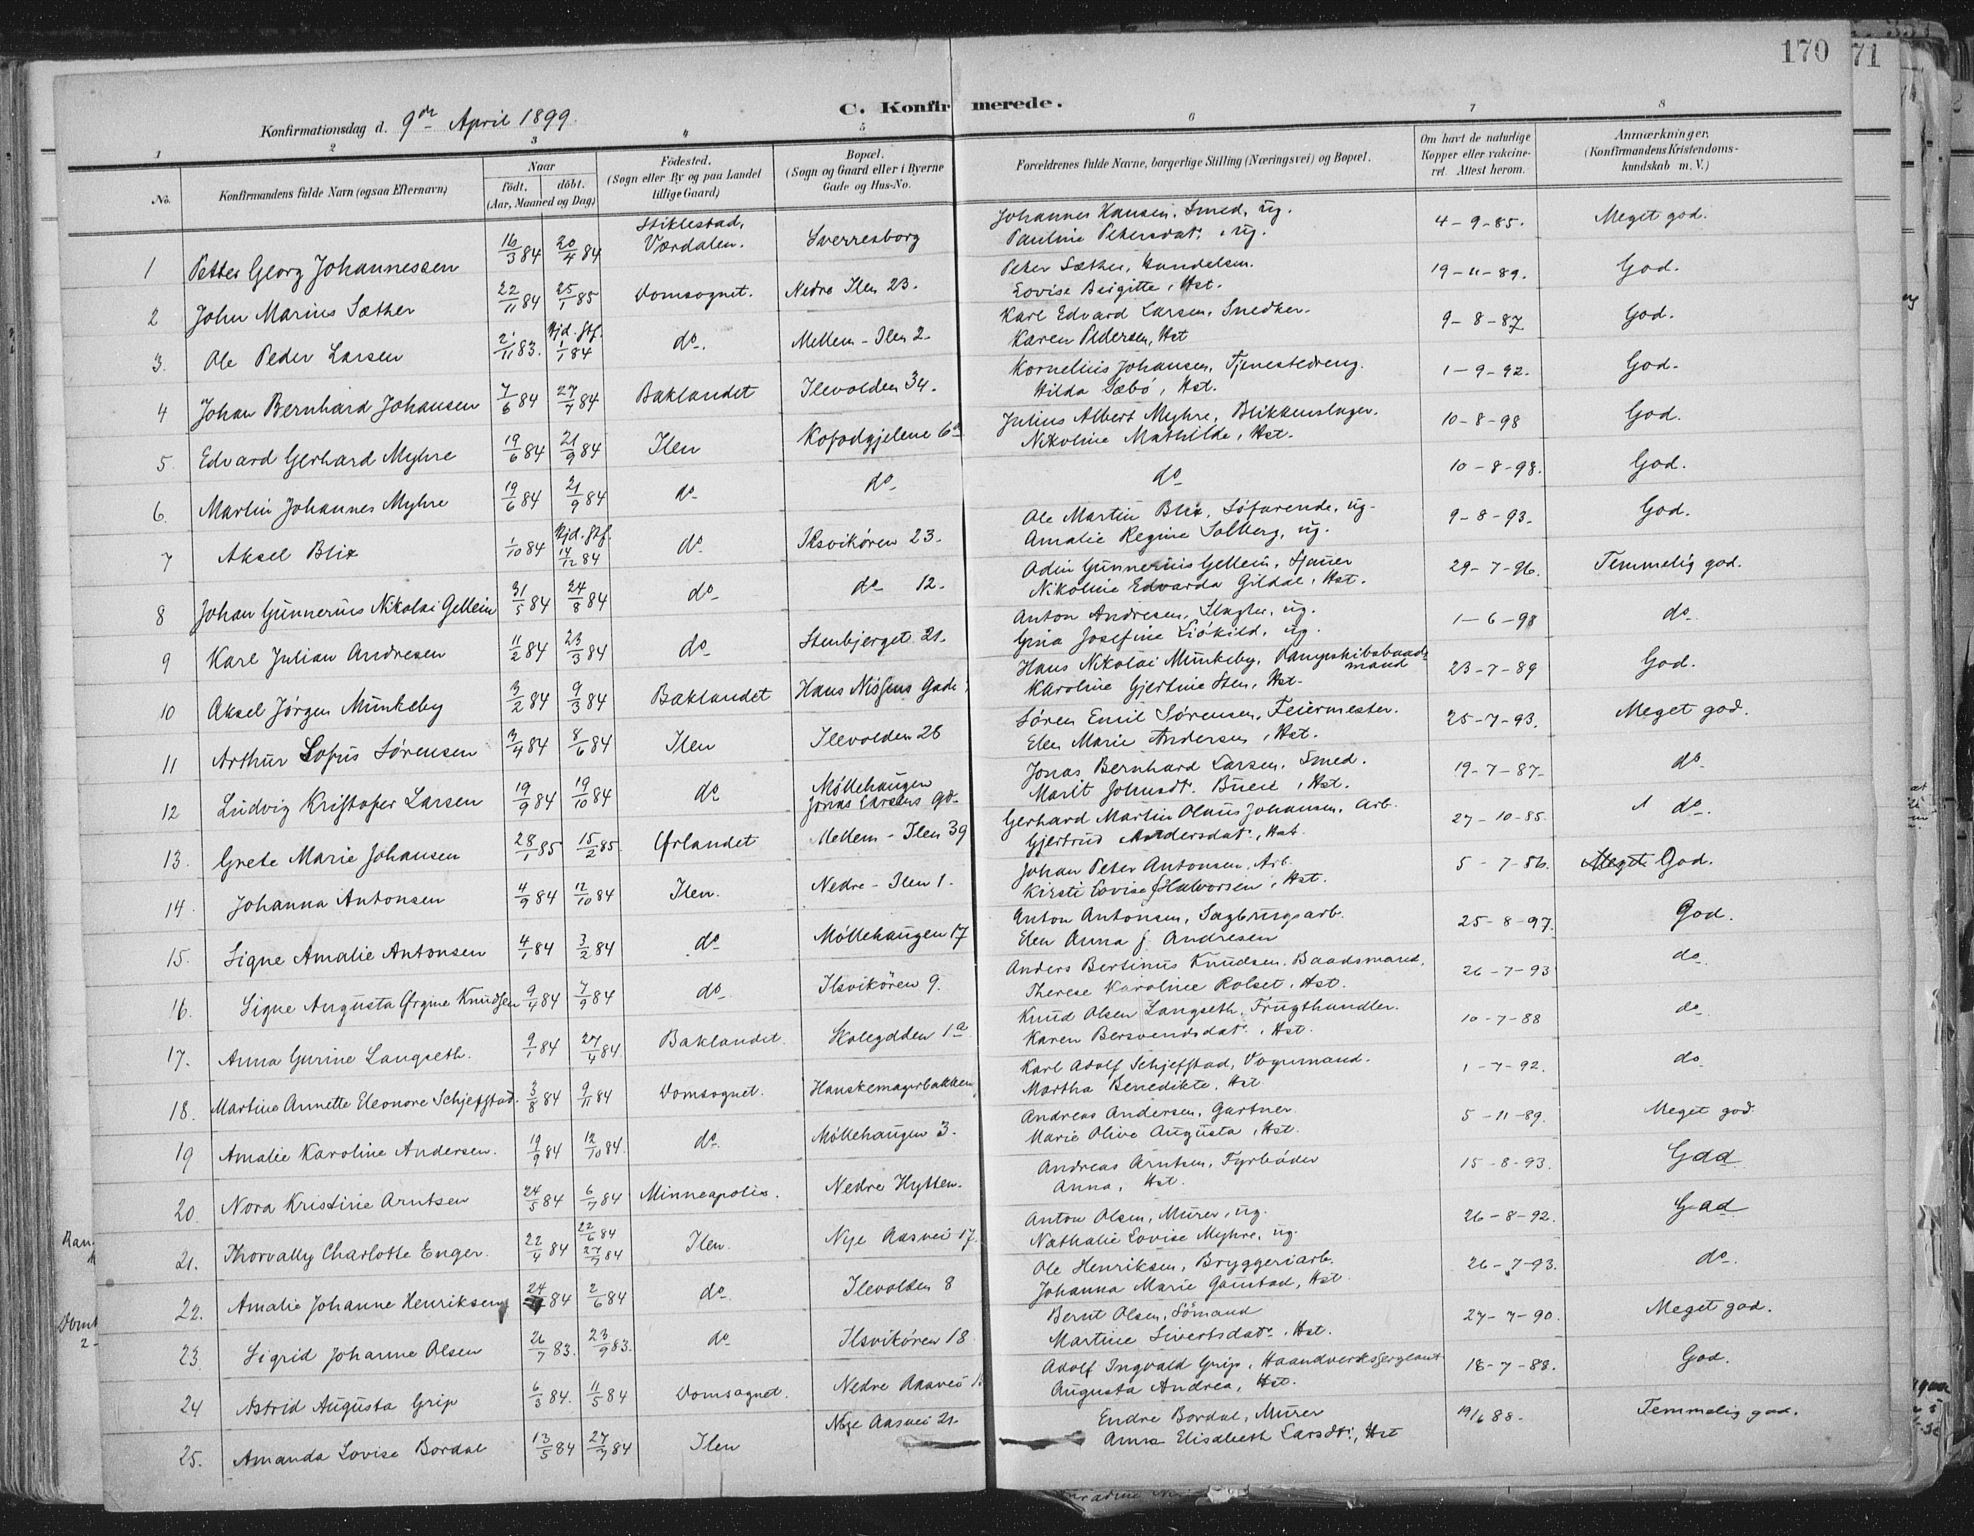 170
71
C. Konfirmerede.
Konfirmationsdag d. 9de April 1899.
1 2 3 4 5 6 7 8
No. Konfirmandens fulde Navn (ogsaa Efternavn) Naar födt. döbt. (Aar, Maaned og Dag) Födested. (Sogn eller By og paa Landet tillige Gaard) Bopæl. (Sogn og Gaard eller i Byerne Gade og Hus-No. Forældrenes fulde Navne, borgerlige Stilling (Næringsvei) og Bopæl. Om havt de naturlige Kopper eller vakcineret. Attest herom. Anmærkninger. (Konfirmandens Kristendomskundskab m. V.)
1 Petter Georg Johannessen 16/3 84 20/4 84 Stiklestad, Værdalen. Sverresborg Johannes Hansen, Smed, ug. Pauline Petersdat., ug. 4-9-85. Meget god.
2 John Marius Sæther 22/11 84 25/1 85 Domsognet. Nedre Ilen 23. Peter Sæther, Handelsm. Lovise Brigitte, Hst. 19-11-89. God.
3. Ole Peder Larsen 2/11 83. Hjd. stf. 1/1 84 do. Mellem-Ilen 2. Karl Edvard Larsen, Snedker. Karen Pedersen, Hst 9-8-87 God.
4 Johan Bernhard Johansen 7/6 84 27/7 84 Baklandet Ilevolden 34. Kornelius Johansen, Tjenestedreng. Hilda Sæbö, Hst. 1-9-92. God.
5. Edvard Gerhard Myhre 19/6 84 21/9 84 Ilen Kofodgjelene 6a Julius Albert Myhre, Blikkenslager. Nikoline Mathilde, Hst. 10-8-98 God.
6. Martin Johannes Myhre 19/6 84 21/9 84 do do do 10-8-98. God.
7 Aksel Blix 1/10 84 Hjd. stf. 14/12 84 do Ilsvikören 23. Ole Martin Blix, Söfarende, ug. Amalie Regine Solberg, ug. 9-8-93. God.
8 Johan Gunnerius Nikolai Gellein 31/5 84 24/8 84 do do 12. Odin Gunnerius Gellein, Stauer Nikoline Edvarda Gildal, Hst. 29-7-96. Temmelig god.
9 Karl Julian Andresen 11/2 84 23/3 84 do Stenbjerget 21. Anton Andresen, Slagter, ug. Gina Josefine Liökild, ug. 1-6-98 do
10 Aksel Jörgen Munkeby 3/2 84 9/3 84 Baklandet Hans Nissens Gade Hans Nikolai Munkeby, Dampskibsbaadsmand Karoline Gjertine Sten, Hst. 23-7-89 God.
11 Arthur Sofus Sørensen 3/4 84 8/6 84 Ilen Ilevolden 26 Søren Emil Sørensen, Feiermester. Elen Marie Andersen, Hst. 25-7-93. Meget god.
12 Ludvig Kristofer Larsen 19/9 84 19/10 84 do Möllehaugen Jonas Larsens Gd. Jonas Bernhard Larsen, Smed. Marit Johnsdt. Buell, Hst. 19-7-87. do
13. Grete Marie Johansen 28/1 85 15/2 85. Ørlandet Mellem-Ilen 39 Gerhard Martin Olaus Johansen, Arb. Gjertrud Andersdat., Hst. 27-10-85. do.
14. Johanna Antonsen 4/9 84 12/10 84 Ilen. Nedre-Ilen 1. Johan Peter Antonsen, Arb. Kirsti Lovise Halvorsen, Hst. 5-7-86. Meget God.
15. Signe Amalie Antonsen 4/1 84 3/2 84 do Möllehaugen 17 Anton Antonsen, Sagbrugsarb. Elen Anna J. Andresen 25-8-97. God.
16. Signe Augusta Ørgine Knudsen 9/4 84 7/9 84 do Ilsvikören 9. Anders Bertinus Knudsen, Baadsmand. Therese Karoline Rolset, Hst. 26-7-93 do
17. Anna Gurine Langseth. 9/1 84 27/4 84. Baklandet. Skolegdden 1a Knud Olsen Langseth, Frugthandler. Karen Bersvendsdat., Hst. 10-7-88 do
18. Martine Annette Eleonore Schjefstad. 3/8 84 9/11 84 Domsognet. Hanskemagerbakken Karl Adolf Schjefstad, Vognmand. Martha Benedikte, Hst 1-7-92. do
19 Amalie Karoline Andersen. 19/9 84 12/10 84. do Möllehaugen 3. Andreas Andersen, Gartner Marie Olive Augusta, Hst. 5-11-89. Meget god.
20. Nora Kristine Arntsen 24/5 84 6/7 84 Minneapolis. Nedre Hytten. Andreas Arntsen, Fyrböder Anna, Hst. 15-8-93. God
21. Thorvally Charlotte Enger. 22/4 84 22/6 84 27/7 84 Ilen. Nye Aasvei 17. Anton Olsen, Murer, ug. Nathalie Lovise Myhre, ug. 26-8-92. God
22. Amalie Johanne Henriksen 24/ 84 2/6 84 do. Ilevolden 8 Ole Henriksen, Bryggeriarb. Johanna Marie Gamstad, Hst. 26-7-93. do.
23. Sigrid Johanne Olsen 26/7 83. 23/9 83. do Ilsvikören 18. Bernt Olsen, Sömand Martine Sivertsdat., Hst. 27-7-90. Meget god.
24 Astrid Augusta Grip 6/3 84. 11/5 84 Domsognet. Nedre Aasvei Adolf Ingvald Grip, Haandverkssergeant Augusta Andrea, Hst. 18-7-88. God.
25. Amanda Lovise Bordal 13/5 84 27/7 84 Ilen Nye Aasvei 21. Endre Bordal, Murer Anna Elisabeth Larsdt., Hst 19/6 88. Temmelig god.